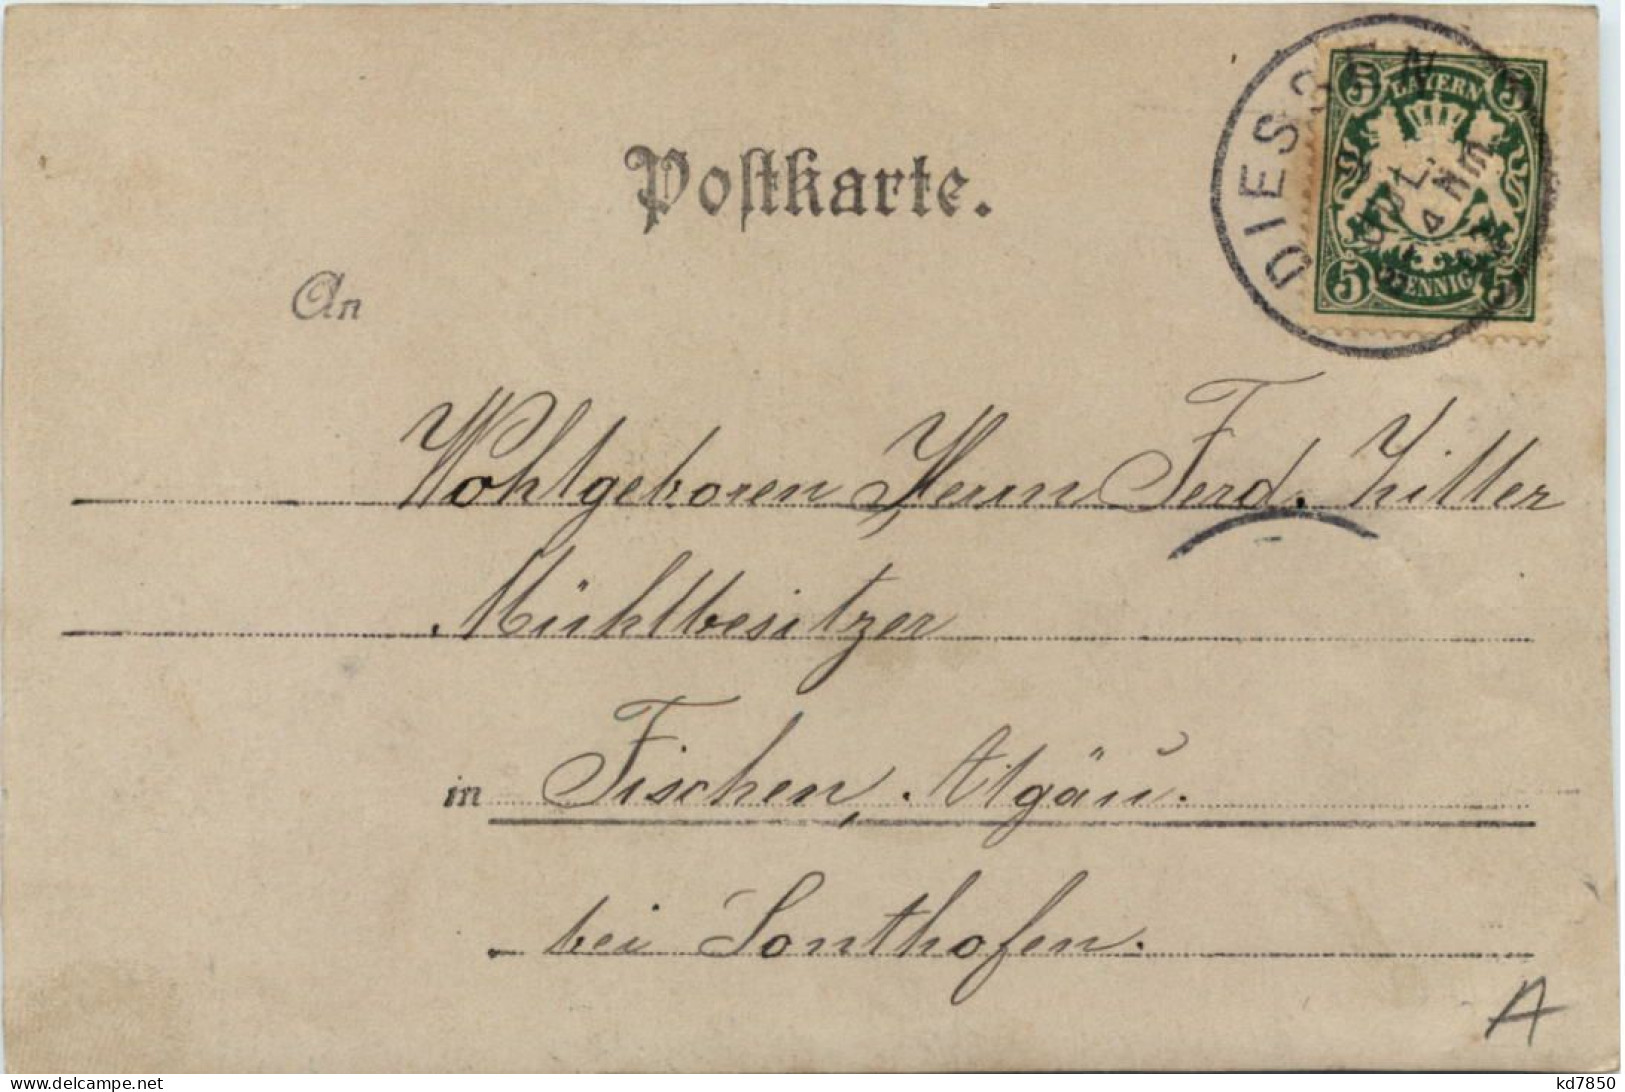 Postkarte.
DIESSEN
5 BAYERN 5
JUL.
4 NM
5 PFENNIG 5
An
Wohlgeboren Herrn Ferd. Zitter
Mühlbesitzer
in Fischen, Algäu.
bei Sonthofen.
A
kd7850